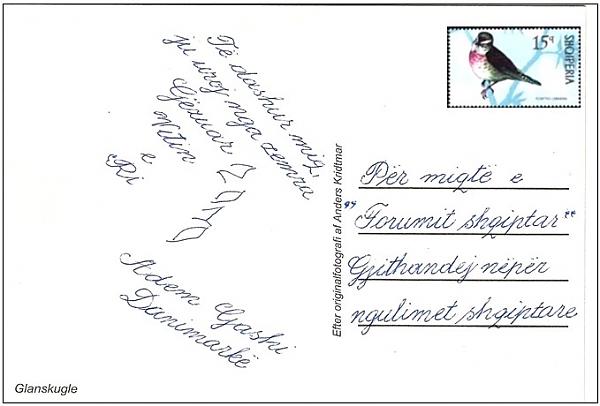 Të dashur miq,
ju uroj nga zemra
Gëzuar
Vitin
e
Ri
2010
Adem Gashi
Danimarkë
Glanskugle
Efter originalfotografi af Anders Kridtmar
15q
SHQIPERIA
Për miqtë e
"Forumit shqiptar"
Gjithandej nëpër
ngulimet shqiptare